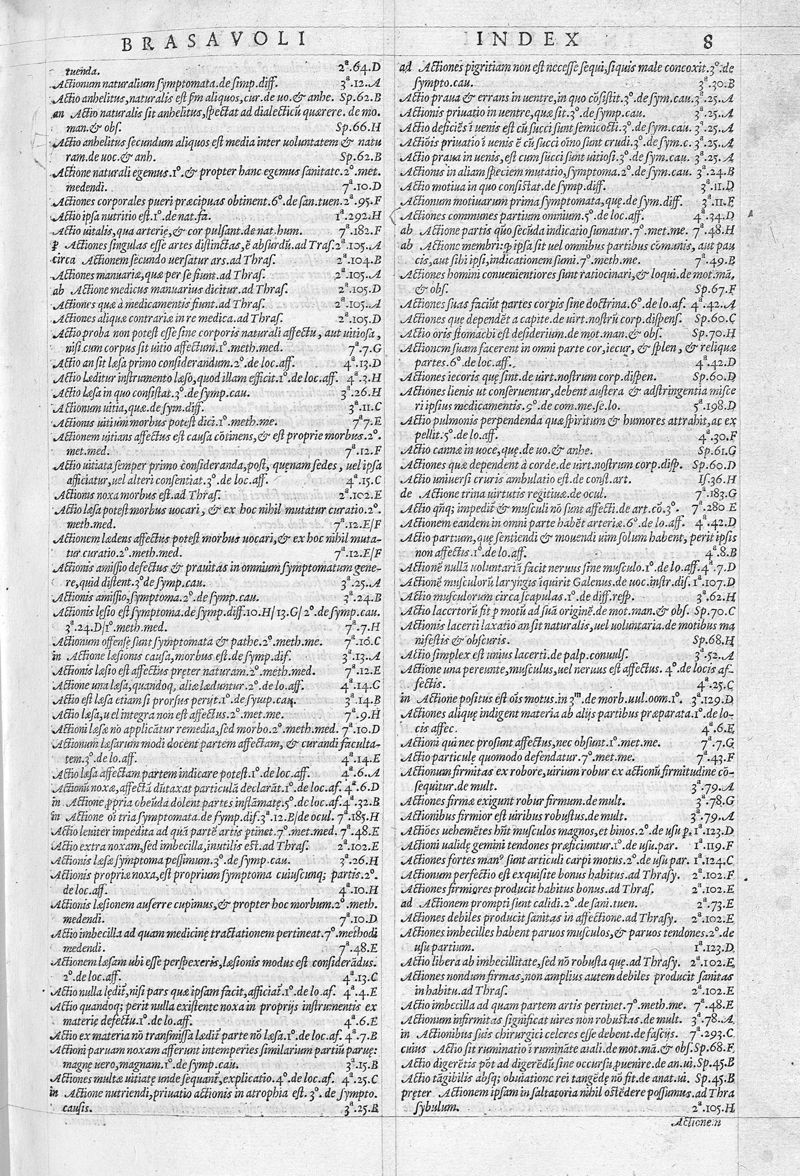 BRASAVOLI
tuenda. 2ᵃ.64.D
Actionum naturalium symptomata.de simp.diff. 3ᵃ.12.A
Actio anhelitus, naturalis est ꝑm aliquos,cur.de uo.& anhe. Sp.62.B
an Actio naturalis sit anhelitus, spectat ad dialecticũ quærere. de mo.
man.& obs. Sp.66.H
Actio anhelitus secundum aliquos est media inter uoluntatem & natu
ram.de uoc.& anh. Sp.62.B
Actione naturali egemus.1⁰.& propter hanc egemus sanitate.2⁰.met.
medendi. 7ᵃ.10.D
Actiones corporales pueri præcipuas obtinent.6⁰.de san.tuen.2ᵃ.95.F
Actio ipsa nutritio est.1⁰.de nat.fa. 1ᵃ.292.H
Actio uitalis,qua arterię,& cor pulsant.de nat.hum. 7ᵃ.182.F
ꝑ Actiones singulas esse artes distinctas,ẽ absurdũ.ad Tras.2ᵃ.105.A
circa Actionem secundo uersatur ars.ad Thras. 2ᵃ.104.B
Actiones manuariæ,quæ per se fiunt.ad Thras. 2ᵃ.105.A
ab Actione medicus manuarius dicitur.ad Thras. 2ᵃ.105.D
Actiones quæ à medicamentis fiunt.ad Thras. 2ᵃ.105.A
Actiones aliquæ contrariæ in re medica.ad Thras. 2ᵃ.105.D
Actio proba non potest esse sine corporis naturali affectu, aut uitiosa,
nisi cum corpus sit uitio affectum.1⁰.meth.med. 7ᵃ.7.G
Actio an sit læsa primo considerandum.2⁰.de loc.aff. 4ᵃ.13.D
Actio læditur instrumento læso,quod illam efficit.1⁰.de loc.aff. 4ᵃ.3.H
Actio læsa in quo consistat.3⁰.de symp.cau. 3ᵃ.26.H
Actionum uitia,quæ.de sym.diff. 3ᵃ.11.C
Actionus uitium morbus potest dici.1⁰.meth.me. 7ᵃ.7.E
Actionem uitians affectus est causa cõtinens,& est proprie morbus.2⁰.
met.med. 7ᵃ.12.F
Actio uitiata semper primo consideranda,post, quęnam sedes, uel ipsa
afficiatur,uel alteri consentiat.3⁰.de loc.aff. 4ᵃ.15.C
Actionus noxa morbus est.ad Thras. 2ᵃ.102.E
Actio læsa potest morbus uocari, & ex hoc nihil mutatur curatio.2⁰.
meth.med. 7ᵃ.12.E/F
Actionem lædens affectus potest morbus uocari,& ex hoc nihil muta-
tur curatio.2⁰.meth.med. 7ᵃ.12.E/F
Actionis amissio defectus & prauitas in omnium symptomatum gene-
re,quid distent.3⁰ de symp.cau. 3ᵃ.25.A
Actionis amissio,symptoma.2⁰.de symp.cau. 3ᵃ.24.B
Actionis lęsio est symptoma.de symp.diff.10.H/13.G/2⁰.de symp.cau.
3ᵃ.24.D/1⁰.meth.med. 7ᵃ.7.H
Actionum offensę sunt symptomata & pathe.2⁰.meth.me. 7ᵃ.16.C
in Actione læsionis causa, morbus est.de symp.dif. 3ᵃ.13.A
Actionis læsio est affectus pręter naturam.2⁰.meth.med. 7ᵃ.12.E
Actione una læsa,quandoq, aliæ læduntur.2⁰.de lo.aff. 4ᵃ.14.G
Actio est læsa etiam si prorsus perijt.1⁰.de symp.cau. 3ᵃ.14.B
Actio læsa,uel integra non est affectus.2⁰.met.me. 7ᵃ.9.H
Actioni læsæ nõ applicãtur remedia,sed morbo.2⁰.meth.med. 7ᵃ.10.D
Actionum læsarum modi docent partem affectam,& curandi faculta-
tem.3⁰.de lo.aff. 4ᵃ.14.E
Actio læsa affectam partem indicare potest.1⁰.de loc.aff. 4ᵃ.6.A
Actionũ noxæ,affectã dũtaxat particulã declarãt.1⁰.de loc.af. 4ᵃ.6.D
in Actione ꝓpria obeũda dolent partes inflãmatę.5⁰.de loc.af.4ᵃ.32.B
in Actione oĩ tria symptomata.de symp.dif.3ᵃ.12.B/de ocul. 7ᵃ.185.H
Actio leuiter impedita ad quã partẽ artis ꝑtinet.7⁰.met.med. 7ᵃ.48.E
Actio extra noxam,sed imbecilla,inutilis est.ad Thras. 2ᵃ.102.E
Actionis læsæ symptoma pessimum.3⁰.de symp.cau. 3ᵃ.26.H
Actionis propriæ noxa,est proprium symptoma cuiuscunq; partis.2⁰.
de loc.aff. 4ᵃ.10.H
Actionis læsionem auferre cupimus,& propter hoc morbum.2⁰.meth.
medendi. 7ᵃ.10.D
Actio imbecilla ad quam medicinę tractationem pertineat.7⁰.methodi
medendi. 7ᵃ.48.E
Actionem læsam ubi esse perspexeris, læsionis modus est considerãdus.
2⁰.de loc.aff. 4ᵃ.13.C
Actio nulla lędit,nisi pars quæ ipsam facit,afficiat.1⁰.de lo.af. 4ᵃ.4.E
Actio quandoq; perit nulla existente noxa in proprijs instrumentis ex
materię defectu.1⁰.de lo.aff. 4ᵃ.6.E
Actio ex materia nõ transmissa lædit parte nõ læsa.1⁰.de loc.af. 4ᵃ.7.B
Actioni paruam noxam afferunt intemperies similarium partiũ paruę:
magnę uero,magnam.1⁰.de symp.cau. 3ᵃ.15.B
Actiones multæ uitiatę unde sequant,explicatio.4⁰.de loc.af. 4ᵃ.25.C
in Actione nutriendi,priuatio actionis in atrophia est. 3⁰.de sympto.
causis. 3ᵃ.25.B
INDEX 8
ad Actiones pigritiam non est necesse sequi,si quis male concoxit.3⁰.de
sympto.cau. 3ᵃ.30.B
Actio praua & errans in uentre,in quo cõsistit.3⁰.de sym.cau.3ᵃ.25.A
Actionis priuatio in uentre,quæ sit.3⁰.de symp.cau. 3ᵃ.25.A
Actio deficiẽs ĩ uenis est cũ succi sunt semicocti.3⁰.de sym.cau. 3ᵃ.25.A
Actiõis priuatio ĩ uenis ẽ cũ succi oĩno sunt crudi.3⁰.de sym.c. 3ᵃ.25.A
Actio praua in uenis,est cum succi sunt uitiosi.3⁰.de sym.cau. 3ᵃ.25.A
Actionus in aliam speciem mutatio,symptoma.2⁰.de sym.cau. 3ᵃ.24.B
Actio motiua in quo consistat.de symp.diff. 3ᵃ.11.D
Actionum motiuarum prima symptomata,quę.de sym.diff. 3ᵃ.11.E
Actiones communes partium omnium.5⁰.de loc.aff. 4ᵃ.34.D
ab Actione partis quo secũda indicatio sumatur.7⁰.met.me. 7ᵃ.48.H
ab Actione membri:q ipsa sit uel omnibus partibus cõmunis, aut pau
cis,aut sibi ipsi,indicationem sumi.7⁰.meth.me. 7ᵃ.49.B
Actiones homini conuenientiores sunt ratiocinari,& loqui.de mot.mã,
& obs. Sp.67.F
Actiones suas faciũt partes corpis sine doctrina.6⁰.de lo.af. 4ᵃ.42.A
Actiones quæ dependẽt a capite.de uirt.nostrũ corp.dispens. Sp.60.C
Actio oris stomachi est desiderium.de mot.man.& obs. Sp.70.H
Actionem suam facerent in omni parte cor,iecur, & splen, & reliquæ
partes.6⁰.de loc.aff. 4ᵃ.42.D
Actiones iecoris quę sint.de uirt.nostrum corp.dispen. Sp.60.D
Actiones lienis ut conseruentur,debent austera & adstringentia misce
ri ipsius medicamentis.9⁰.de com.me.se.lo. 5ᵃ.198.D
Actio pulmonis perpendenda quæ spiritum & humores attrahit,ac ex
pellit.5⁰.de lo.aff. 4ᵃ.30.F
Actio cannæ in uoce,quę.de uo.& anhe. Sp.61.G
Actiones quæ dependent à corde.de uirt.nostrum corp.disp. Sp.60.D
Actio uniuersi cruris ambulatio est.de const.art. Is.36.H
de Actione trina uirtutis regitiuæ.de ocul. 7ᵃ.183.G
Actio qñq; impedit & musculi nõ sunt affecti.de art.cõ.3⁰. 7ᵃ.280 E
Actionem eandem in omni parte habẽt arteriæ.6⁰.de lo.aff. 4ᵃ.42.D
Actio partium,quę sentiendi & mouendi uim solum habent, perit ipsis
non affectus.1⁰.de lo.aff. 4ᵃ.8.B
Actionẽ nullã uoluntariã facit neruus sine musculo.1⁰.de lo.aff.4ᵃ.7.D
Actionẽ musculorũ laryngis ĩquirit Galenus.de uoc.instr.dif. 1ᵃ.107.D
Actio musculorum circa scapulas.1⁰.de diff.resp. 3ᵃ.62.H
Actio lacertorũ fit ꝑ motũ ad suã originẽ.de mot.man.& obs. Sp.70.C
Actionis lacerti laxatio an sit naturalis,uel uoluntaria.de motibus ma
nifestis & obscuris. Sp.68.H
Actio simplex est unius lacerti.de palp.conuuls. 3ᵃ.52.A
Actione una pereunte,musculus,uel neruus est affectus. 4⁰.de locis af-
fectis. 4ᵃ.25.C
in Actione positus est oĩs motus.in 3ᵐ.de morb.uul.com.1⁰. 3ᵃ.129.D
Actiones aliquę indigent materia ab alijs partibus præparata.1⁰.de lo-
cis affec. 4ᵃ.6.E
Actioni qui nec prosunt affectus,nec obsunt.1⁰.met.me. 7ᵃ.7.G
Actio particulę quomodo defendatur.7⁰.met.me. 7ᵃ.43.F
Actionum firmitas ex robore,uirium robur ex actionũ firmitudine cõ-
sequitur.de mult. 3ᵃ.79.A
Actiones firmæ exigunt robur firmum.de mult. 3ᵃ.78.G
Actionibus firmior est uiribus robustus.de mult. 3ᵃ.79.A
Actiões uehemẽtes hñt musculos magnos,et binos.2⁰.de usu p. 1ᵃ.123.D
Actioni ualidę gemini tendones præficiuntur.1⁰.de usu.par. 1ᵃ.119.F
Actiones fortes man⁹ sunt articuli carpi motus.2⁰.de usu par. 1ᵃ.124.C
Actionum perfectio est exquisite bonus habitus.ad Thrasy. 2ᵃ.102.F
Actiones firmiores producit habitus bonus.ad Thras. 2ᵃ.102.E
ad Actionem prompti sunt calidi.2⁰.de sani.tuen. 2ᵃ.73.E
Actiones debiles producit sanitas in affectione.ad Thrasy. 2ᵃ.102.E
Actiones imbecilles habent paruos musculos,& paruos tendones.2⁰.de
usu partium. 1ᵃ.123.D
Actio libera ab imbecillitate,sed nõ robusta quę.ad Thrasy. 2ᵃ.102.E
Actiones nondum firmas,non amplius autem debiles producit sanitas
in habitu.ad Thras. 2ᵃ.102.E
Actio imbecilla ad quam partem artis pertinet.7⁰.meth.me. 7ᵃ.48.E
Actionum infirmitas significat uires non robustas.de mult. 3ᵃ.78.A
in Actionibus suis chirurgici celeres esse debent.de fascijs. 7ᵃ.293.C
cuius Actio sit ruminatio ĩ ruminãte aĩali.de mot.mã.& obs.Sp.68.F
Actio digerẽtis põt ad digerẽdũ sine occursu,puenire.de an.ui.Sp.45.B
Actio tãgibilis absq; obuiatione rei tangẽdę nõ fit.de anat.ui. Sp.45.B
pręter Actionem ipsam in saltatoria nihil ostẽdere possumus.ad Thra
sybulum. 2ᵃ.105.H
Actionem